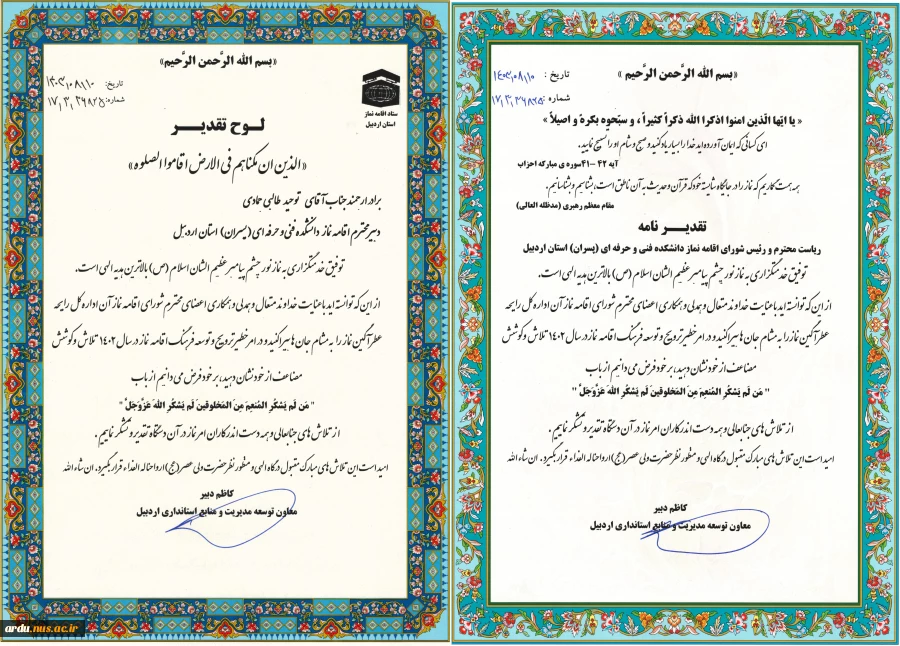 «بسم الله الرَّحمن الرَّحیم»
تاریخ: ۱۴۰۳,۰۸,۱۰
شماره: ۱۷/۳/۳۶۸۲۵
ستاد اقامه نماز
استان اردبیل
لـوح تقدیـر
«الذین ان مکناهم فی الارض اقاموا الصلوه»
برادر ارجمند جناب آقای توحید طالبی حمادی
دبیر محترم اقامه نماز دانشکده فنی و حرفه ای (پسران) استان اردبیل
توفیق خدمتگزاری به نماز نور چشم پیامبر عظیم الشان اسلام (ص) بالاترین هدیه الهی است.
از این که توانسته اید با عنایت خداوند متعال و همدلی و همکاری اعضای محترم شورای اقامه نماز آن اداره کل رایحه
عطر آگین نماز را به مشام جان ها سپراکنید و در امر خطیر ترویج و توسعه فرهنگ اقامه نماز در سال ۱۴۰۲ تلاش و کوشش
مضاعف از خود نشان دهید، بر خود فرض می دانیم از باب
" مَن لَم یَشکُرِ المُنعِمَ مِنَ المَخلوقینَ لَم یَشکُرِ اللهَ عَزَّوَجَلَّ "
از تلاش های جنابعالی و همه دست اندر کاران امر نماز در آن دستگاه تقدیر و تشکر نماییم.
امید است این تلاش های مبارک مقبول درگاه الهی و منظور نظر حضرت ولی عصر (عج) ارواحنا له الفداء قرار بگیرد. ان شاء الله
کاظم دبیر
معاون توسعه مدیریت و منابع استانداری اردبیل
ardu.nus.ac.ir
«بسم الله الرَّحمن الرَّحیم»
تاریخ : ۱۴۰۳,۰۸,۱۰
شماره : ۱۷/۳/۳۶۸۲۵
« یا ایّها الّذین امنوا اذکرا الله ذکراً کثیراً ، و سبّحوه بکرهً و اصیلاً »
ای کسانی که ایمان آورده اید خدا را بسیار یاد کنید و صبح و شام او را تسبیح نمایید.
آیه ۴۲ -۴۱سوره ی مبارکه احزاب
همه همت گماریم که نماز را در جایگاه شایسته خود که قرآن و حدیث به آن ناطق است، بشناسیم و بشناسانیم.
مقام معظم رهبری (مدظله العالی)
تقدیـر نامه
ریاست محترم و رئیس شورای اقامه نماز دانشکده فنی و حرفه ای (پسران) استان اردبیل
توفیق خدمتگزاری به نماز نور چشم پیامبر عظیم الشان اسلام (ص) بالاترین هدیه الهی است.
از این که توانسته اید با عنایت خداوند متعال و همدلی و همکاری اعضای محترم شورای اقامه نماز آن اداره کل رایحه
عطر آگین نماز را به مشام جان ها سپراکنید و در امر خطیر ترویج و توسعه فرهنگ اقامه نماز در سال ۱۴۰۲ تلاش و کوشش
مضاعف از خود نشان دهید، بر خود فرض می دانیم از باب
" مَن لَم یَشکُرِ المُنعِمَ مِنَ المَخلوقینَ لَم یَشکُرِ اللهَ عَزَّوَجَلَّ "
از تلاش های جنابعالی و همه دست اندر کاران امر نماز در آن دستگاه تقدیر و تشکر نماییم.
امید است این تلاش های مبارک مقبول درگاه الهی و منظور نظر حضرت ولی عصر (عج) ارواحنا له الفداء قرار بگیرد. ان شاء الله
کاظم دبیر
معاون توسعه مدیریت و منابع استانداری اردبیل